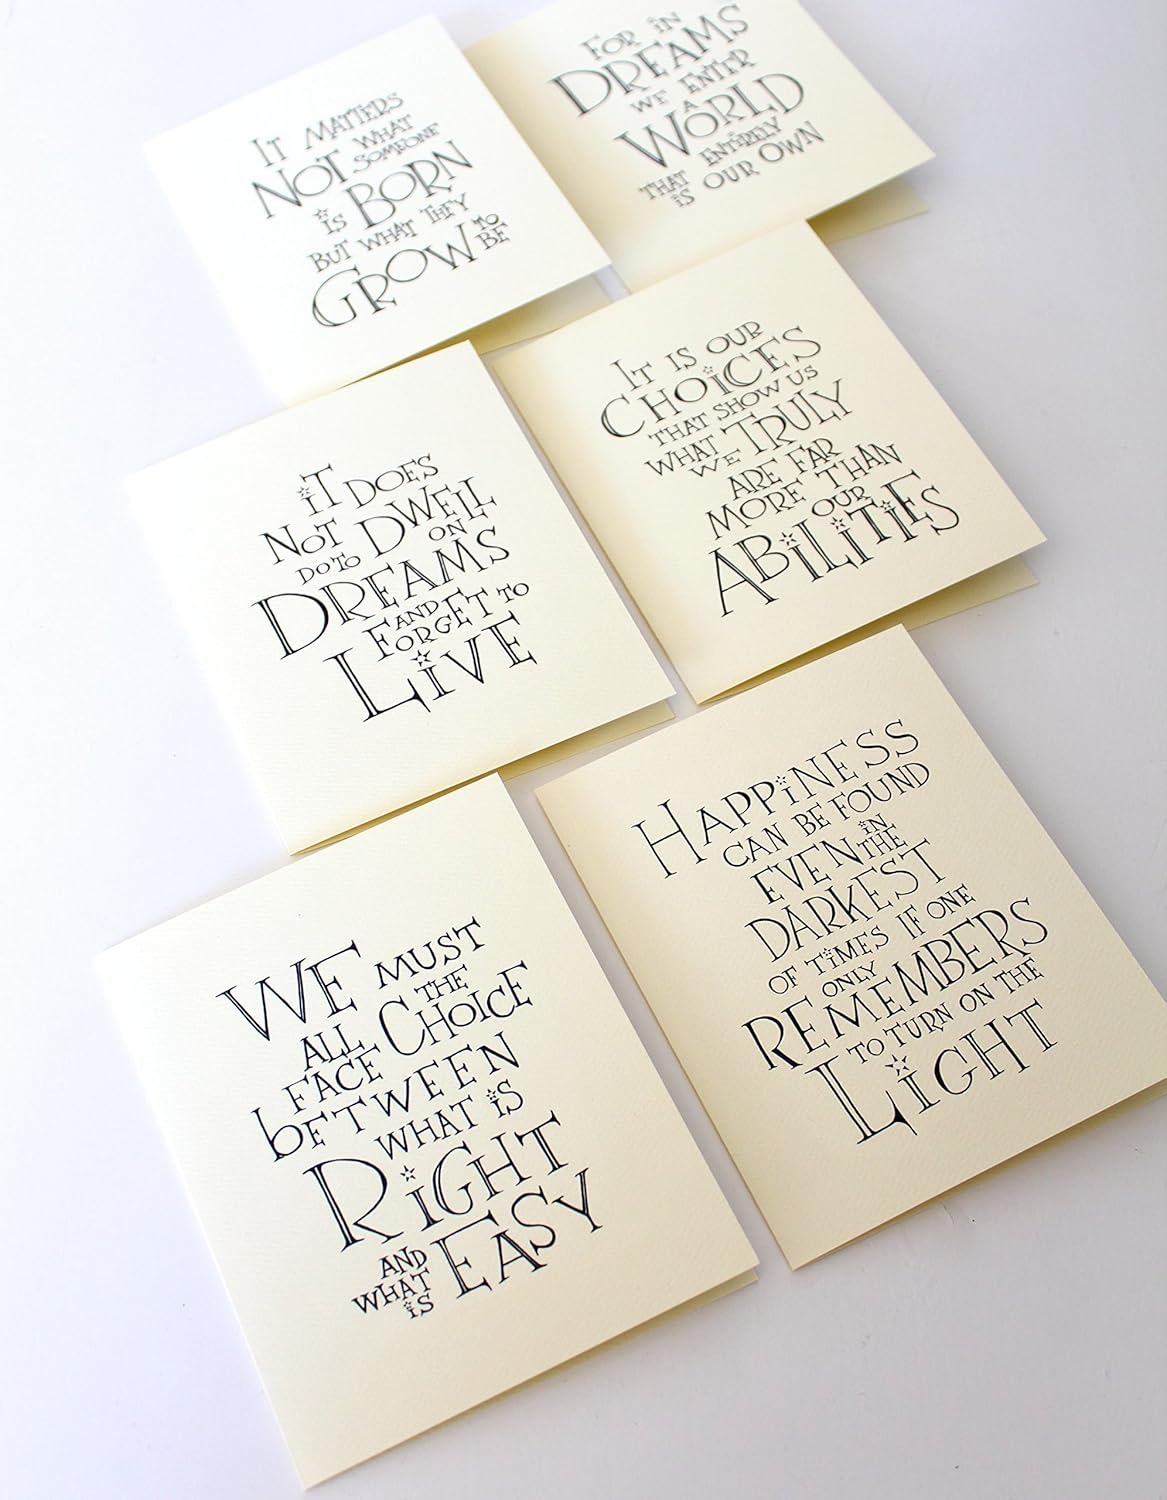 IT MATTERS
NOT WHAT
SOMEONE
is BORN
BUT WHAT THEY
GROW TO
BE
FOR iN
DREAMS
WE ENTER
A
WORLD
THAT ENTiRELY
iS OUR OWN
iT DOES
NOT DWELL
DO TO ON
DREAMS
AND
FORGET TO
LiVE
IT IS OUR
CHOiCES
THAT SHOW US
WHAT TRULY
WE
ARE FAR
MORE THAN
OUR
ABiLiTiES
WE MUST
ALL THE
FACE CHOICE
bETWEEN
WHAT iS
RiGHT
AND
WHAT EASY
iS
HAPPiNESS
CAN BE FOUND
EVEN iN
THE
DARKEST
OF TiMES IF ONE
ONLY
REMEMBERS
TO TURN ON THE
LiGHT